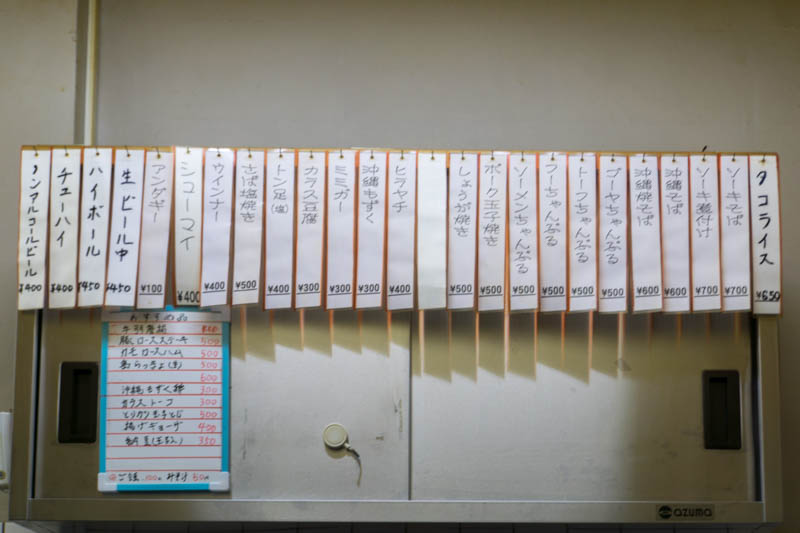 タコライス ¥650
ソーキそば ¥700
ソーキ煮付け ¥700
沖縄そば ¥600
沖縄焼そば ¥600
ゴーヤちゃんぷる ¥500
トーフちゃんぷる ¥500
フーちゃんぷる ¥500
ソーメンちゃんぷる ¥500
ポーク玉子焼き ¥500
しょうが焼き ¥500
ヒラヤチ ¥400
沖縄もずく ¥300
ミミガー ¥300
カラス豆腐 ¥300
トン足(塩) ¥400
さば塩焼き ¥500
ウインナー ¥400
シューマイ ¥400
アンダギー ¥100
生ビール中 ¥450
ハイボール ¥450
チューハイ ¥400
ノンアルコールビール ¥400
おすすめ品
豚ロースステーキ 500
カモロースハム 500
島らっきょ(生) 500
600
沖縄もずく酢 300
カラストーフ 300
とりカツ玉子とじ 500
揚げギョーザ 400
納豆(玉子入) 350
ご飯 100 みそ汁 50円
azuma